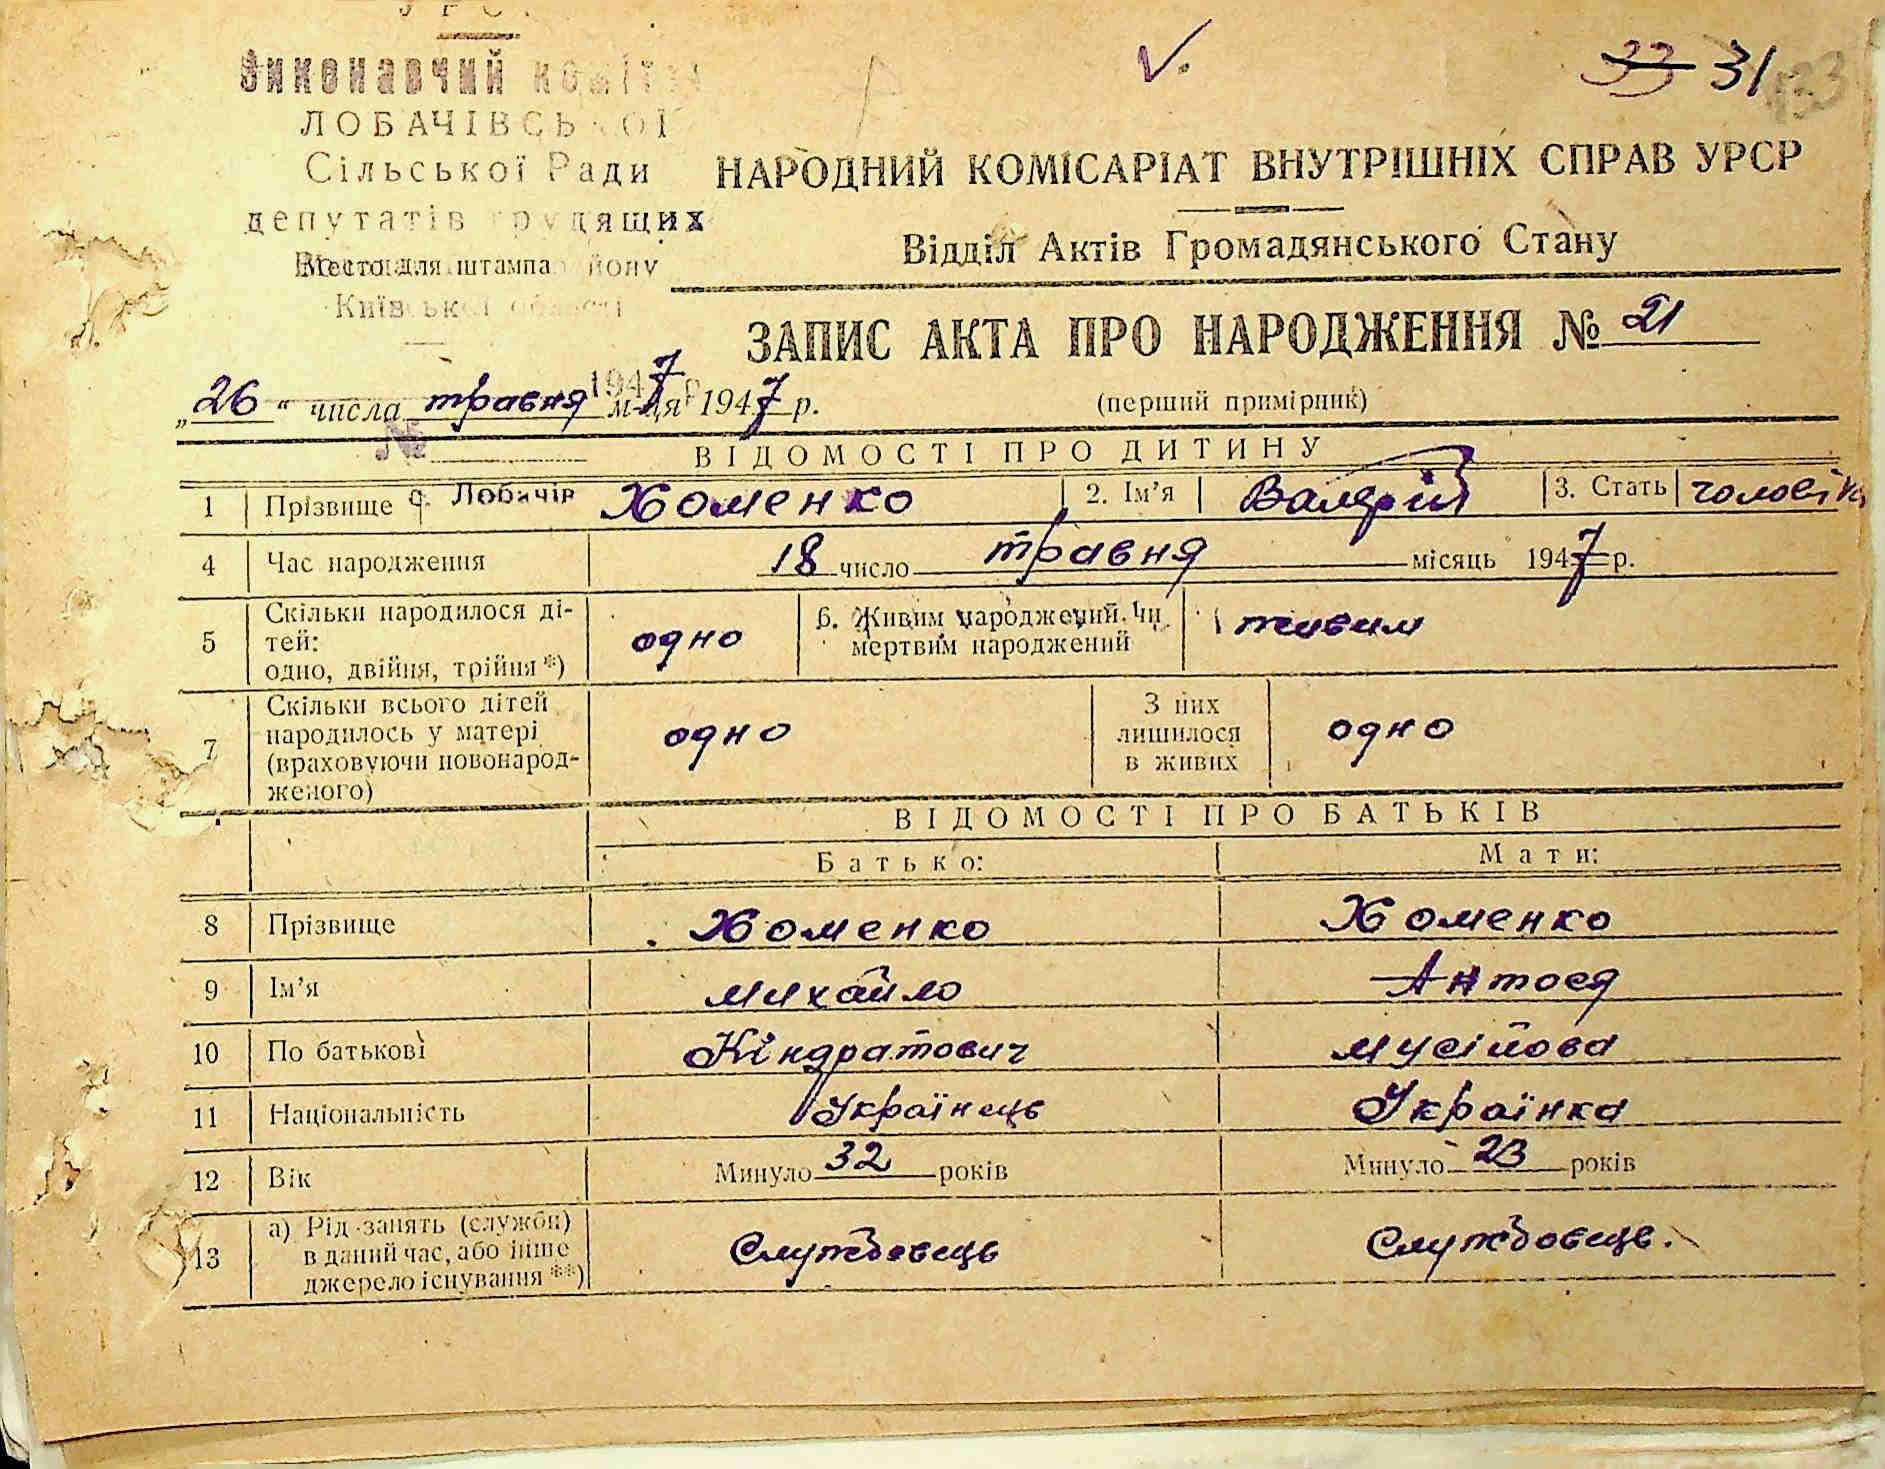 УРС
Виконавчий коміт
ЛОБАЧІВСЬКОЇ
Сільської Ради
депутатів трудящих
Место для штампа йону
Київської області
1947 р
№
33 31 133
НАРОДНИЙ КОМІСАРІАТ ВНУТРІШНІХ СПРАВ УРСР
Відділ Актів Громадянського Стану
ЗАПИС АКТА ПРО НАРОДЖЕННЯ № 21
„26“ числа травня м-ця 1947 р. (перший примірник)
ВІДОМОСТІ ПРО ДИТИНУ
1 Прізвище с. Лобачів Хоменко 2. Ім'я Валерій 3. Стать чоловіча
4 Час народження 18 число травня місяць 1947 р.
5 Скільки народилося ді-
тей:
одно, двійня, трійня *) одно 6. Живим народжений чи
мертвим народжений живим
7 Скільки всього дітей
народилось у матері
(враховуючи новонарод-
женого) одно З них
лишилося
в живих одно
ВІДОМОСТІ ПРО БАТЬКІВ
Батько: Мати:
8 Прізвище Хоменко Хоменко
9 Ім'я Михайло Антося
10 По батькові Кіндратович Мусійова
11 Національність Українець Українка
12 Вік Минуло 32 років Минуло 23 років
13 а) Рід занять (служби)
в даний час, або інше
джерело існування **) Службовець Службовець.